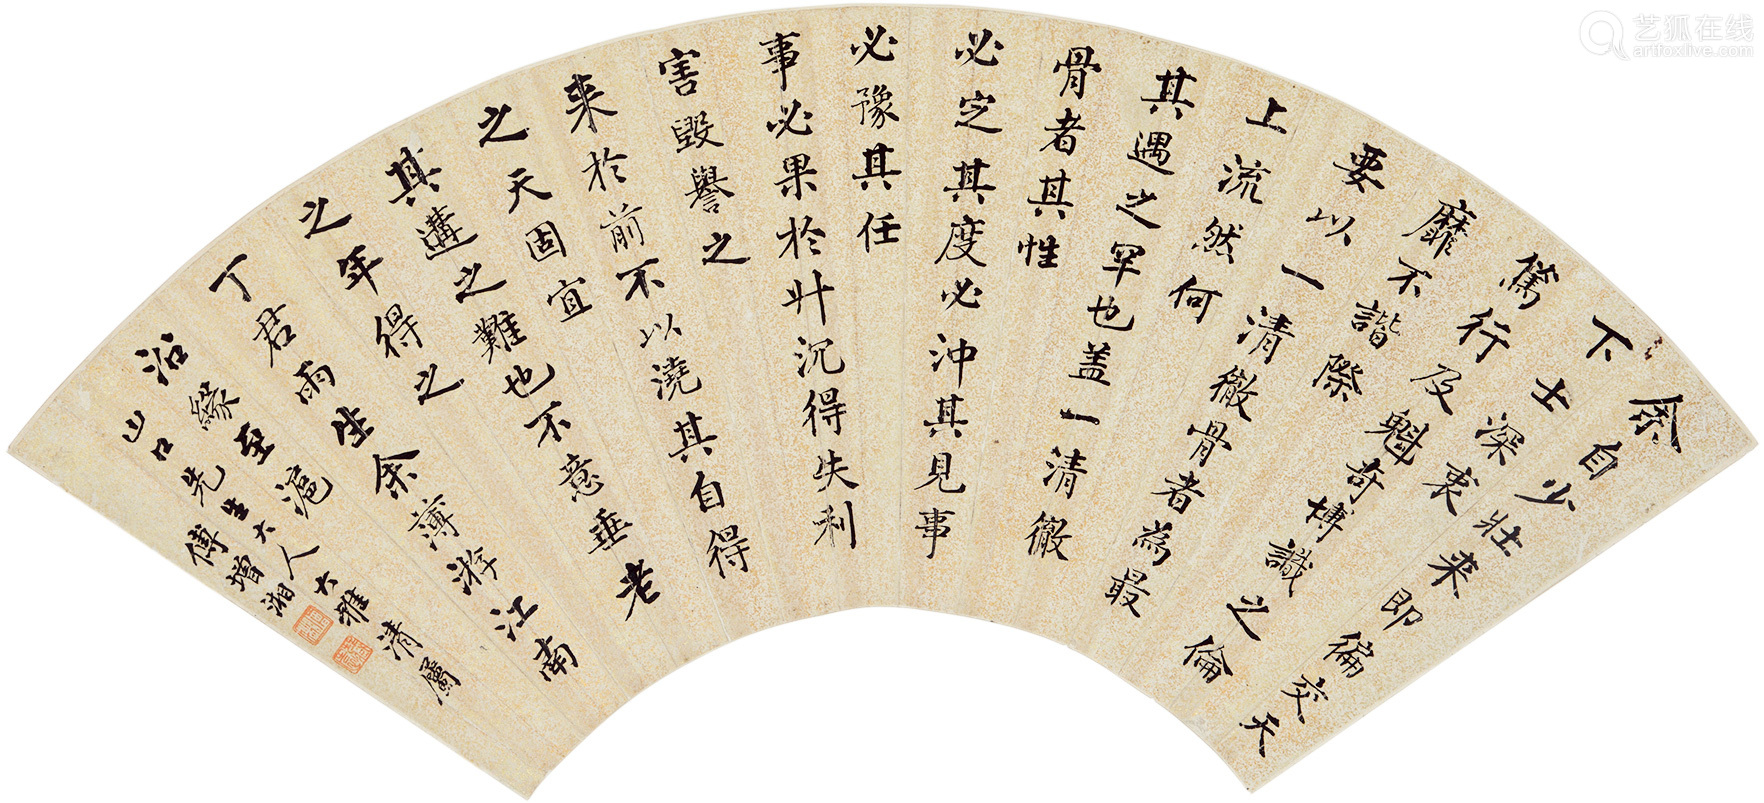 余自少壯来即徧交天
下士深衷
篤行及魁奇博識之倫
靡不諧際
要以一清徹骨者為最
上流然何
其遇之罕也盖一清徹
骨者其性
必定其度必沖其見事
必豫其任
事必果於升沉得失利
害毀譽之
来於前不以澆其自得
之天固宜
其遘之難也不意垂老
之年得之
丁君雨生余薄游江南
沿緣至滬
山口先生大人大雅清屬
傅增湘
艺狐在线
artfoxlive.com